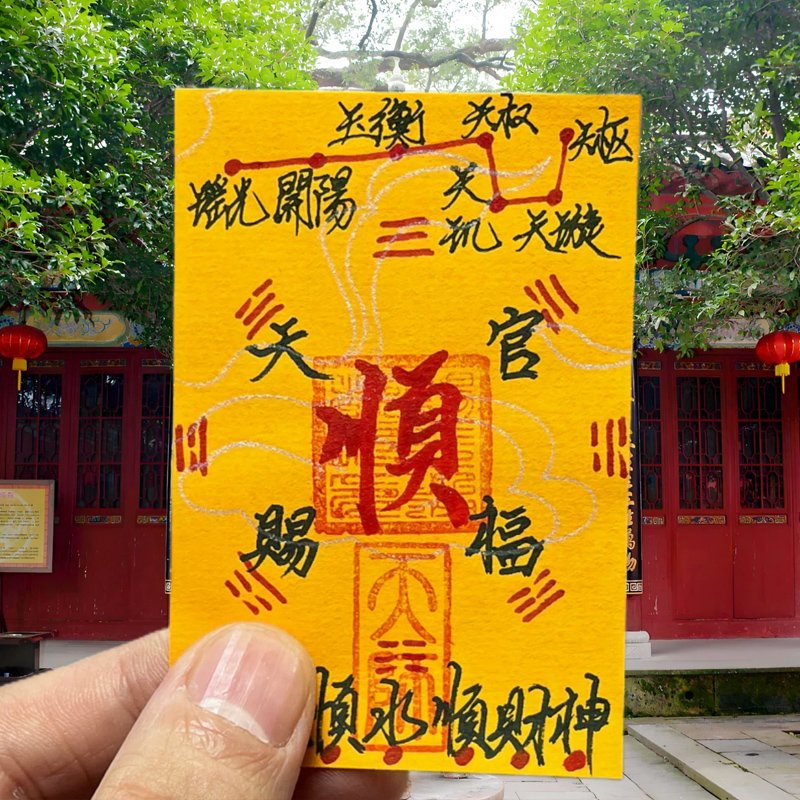 玉衡 天权 天枢
瑶光 開陽 天玑 天璇
天 官
順
賜 福
順水順財神